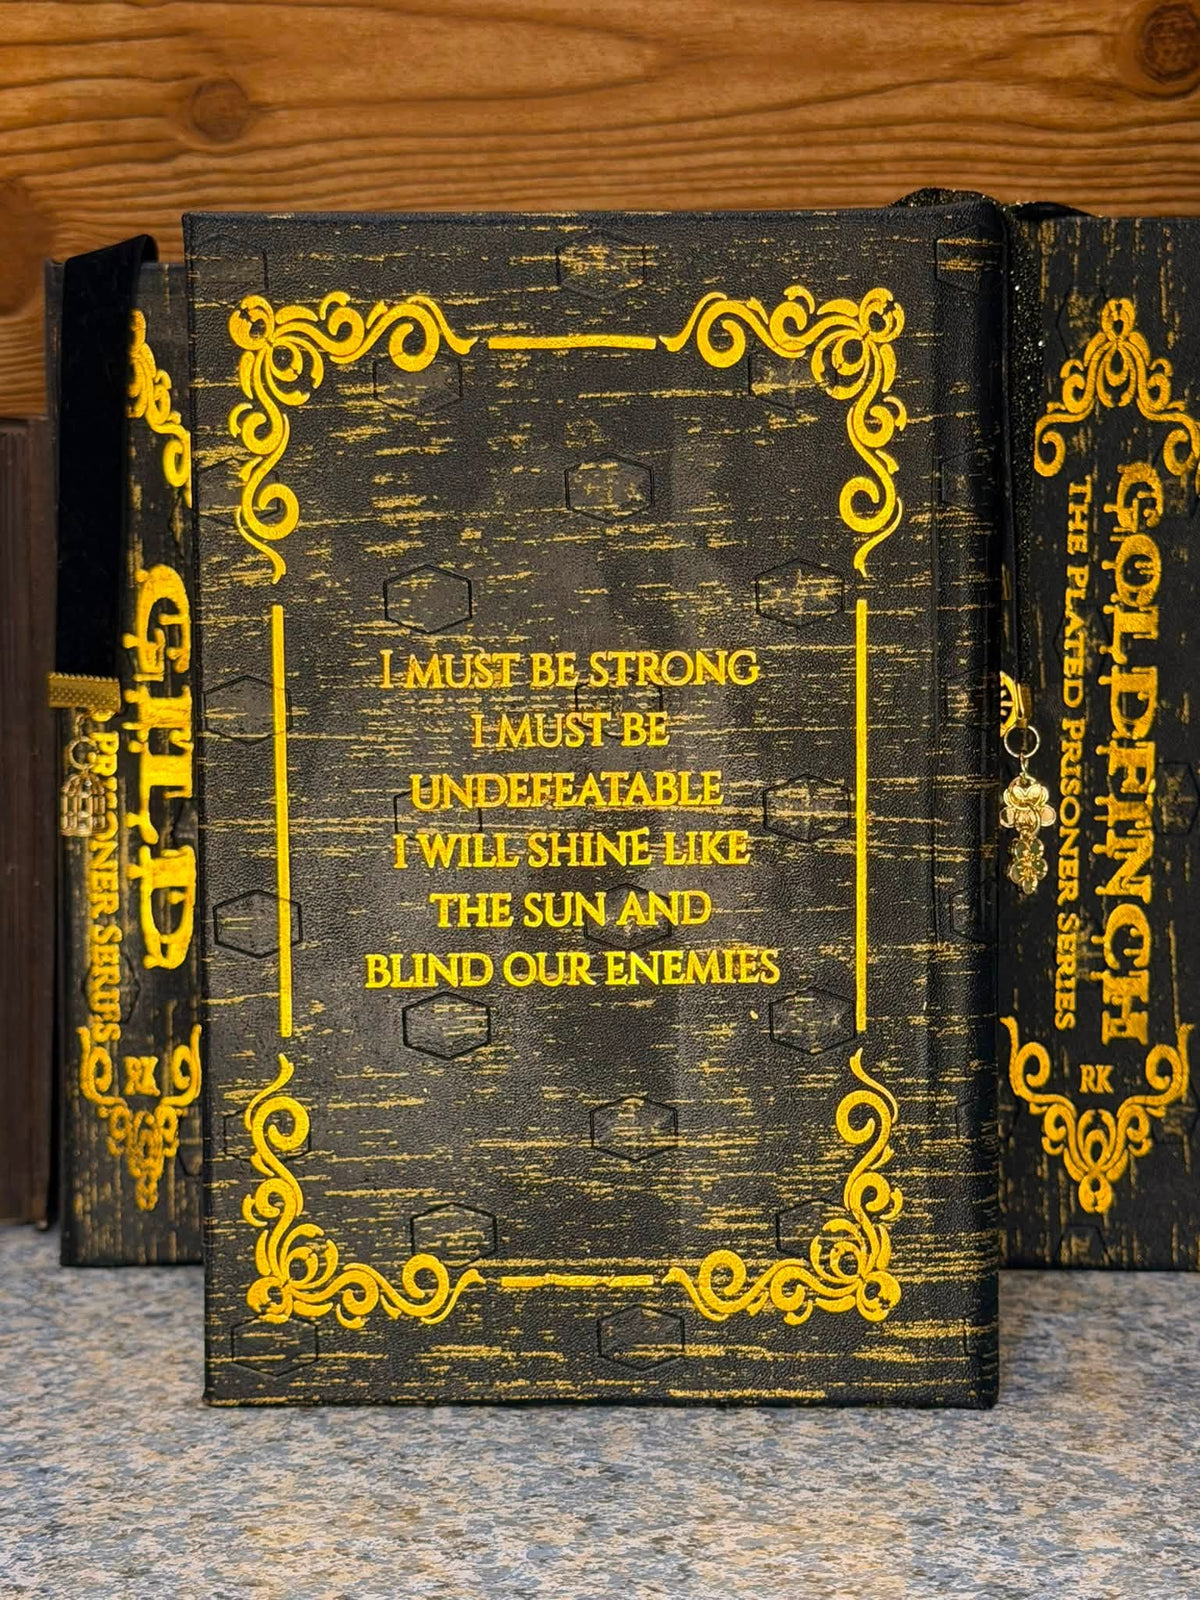 I MUST BE STRONG
I MUST BE
UNDEFEATABLE
I WILL SHINE LIKE
THE SUN AND
BLIND OUR ENEMIES
GILD
PRISONER SERIES
RK
GOLDFINCH
THE PLATED PRISONER SERIES
RK